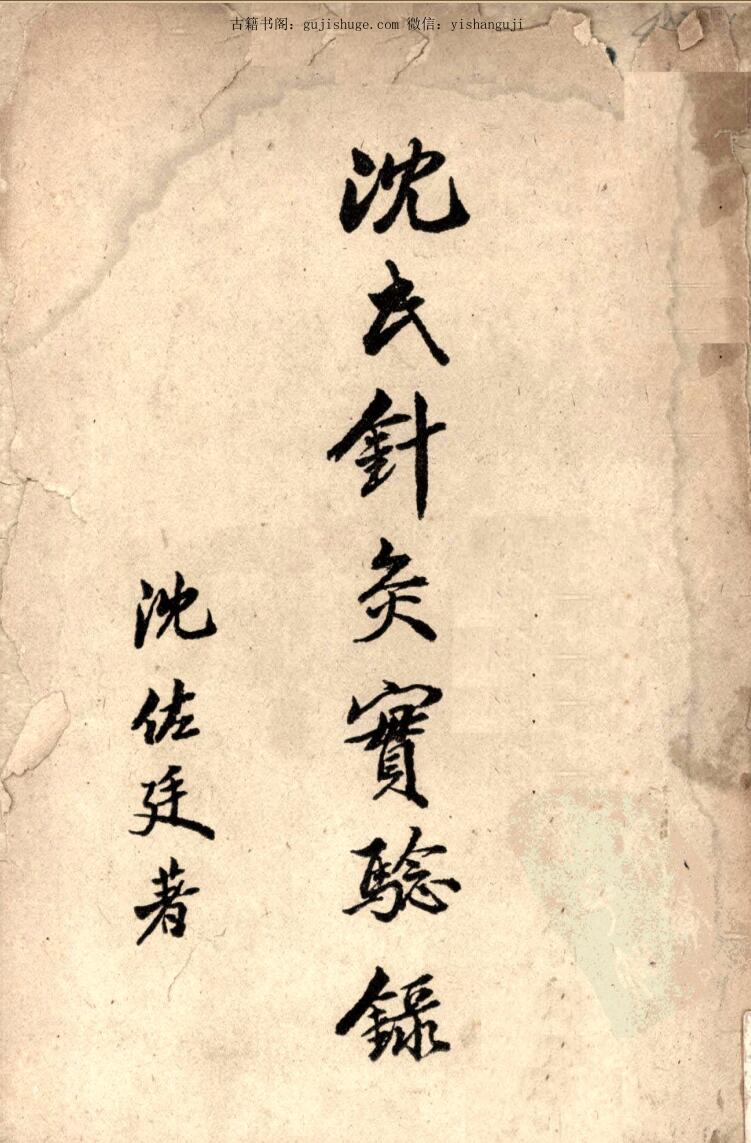 古籍书阁：gujishuge.com 微信：yishanguji
沈氏針灸實驗錄
沈佐廷著